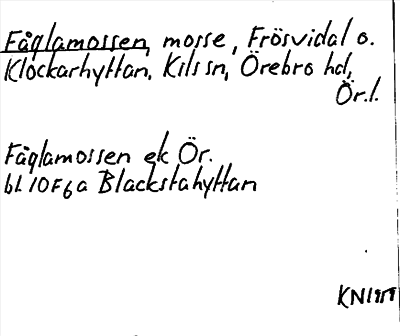 Fåglamossen, mosse, Frösvidal o.
Klockarhyttan, Kils sn, Örebro hd,
Ör.l.
Fåglamossen ek Ör.
bl 10F6a Blackstahyttan